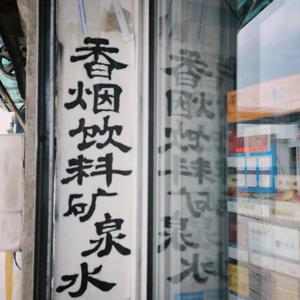 香烟饮料矿泉水